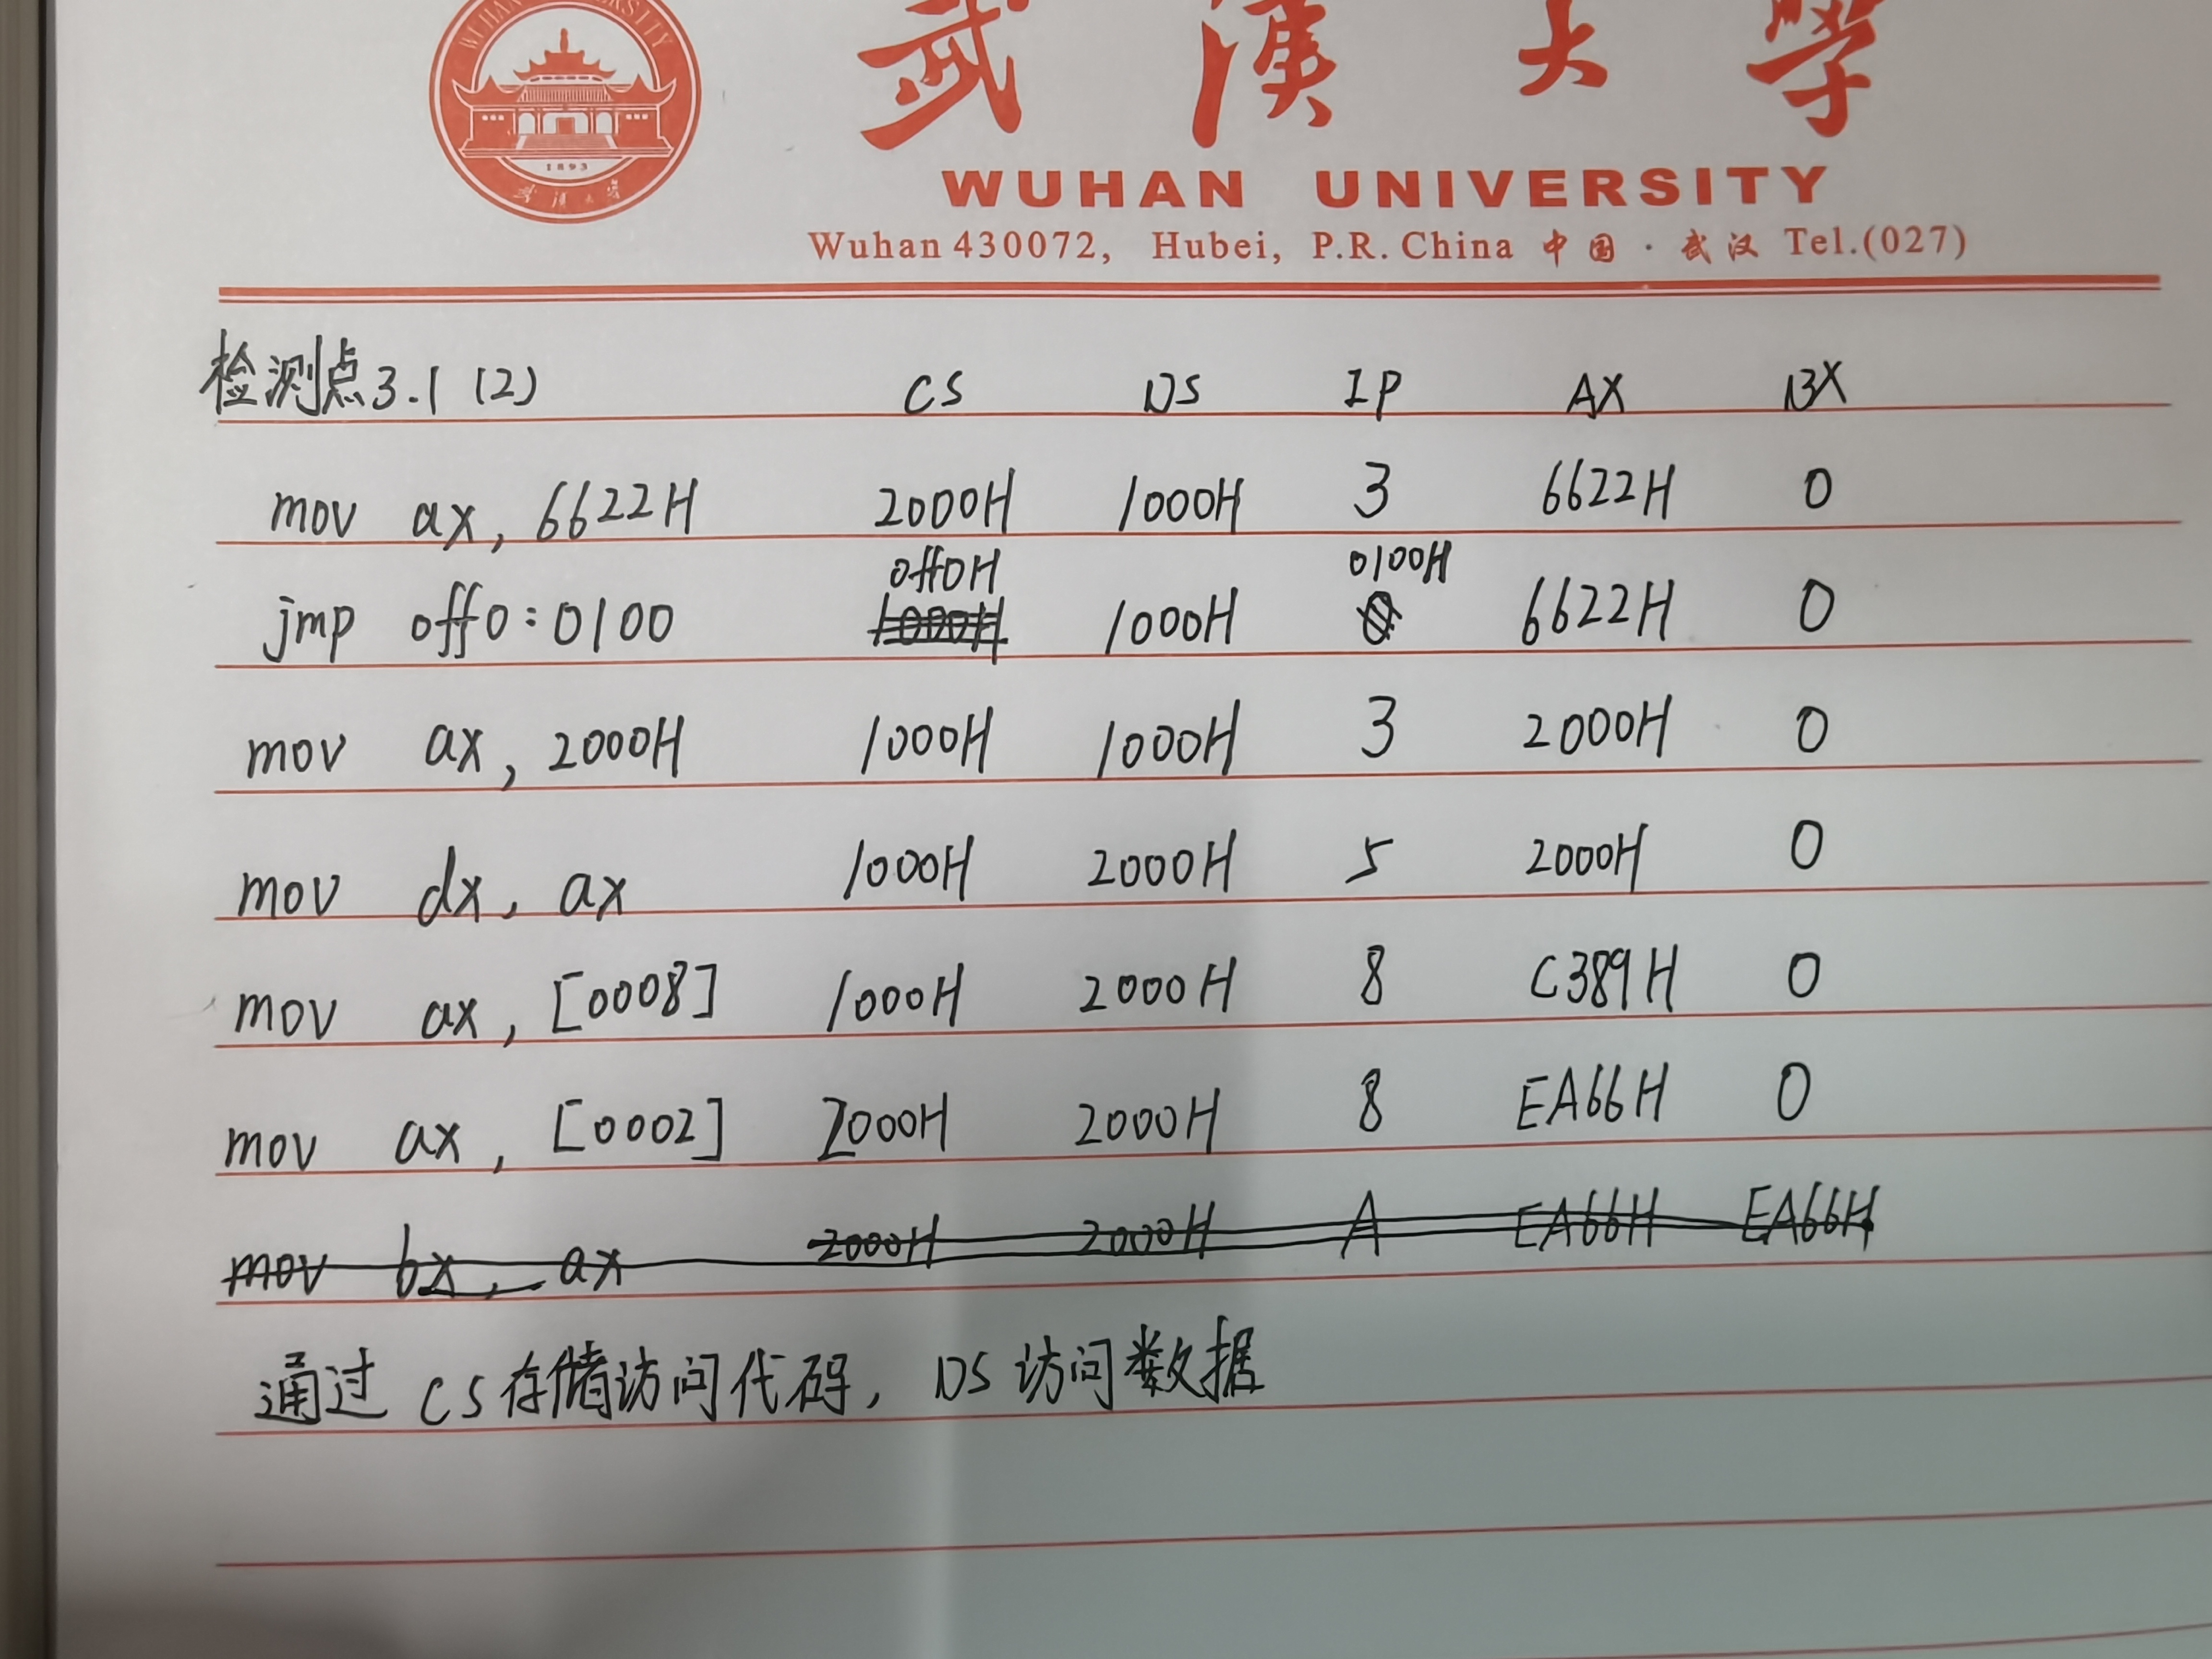 武漢大學
WUHAN UNIVERSITY
Wuhan 430072, Hubei, P.R. China 中国·武汉 Tel.(027)
1893
检测点3.1 (2) CS DS IP AX BX
mov ax, 6622H 2000H 1000H 3 6622H 0
0ff0H 0100H
jmp 0ff0:0100 1000H 1000H 0 6622H 0
mov ax, 2000H 1000H 1000H 3 2000H 0
mov dx, ax 1000H 2000H 5 2000H 0
mov ax, [0008] 1000H 2000H 8 C389H 0
mov ax, [0002] 2000H 2000H 8 EA66H 0
mov bx, ax 2000H 2000H A EA66H EA66H
通过CS存储访问代码, DS访问数据